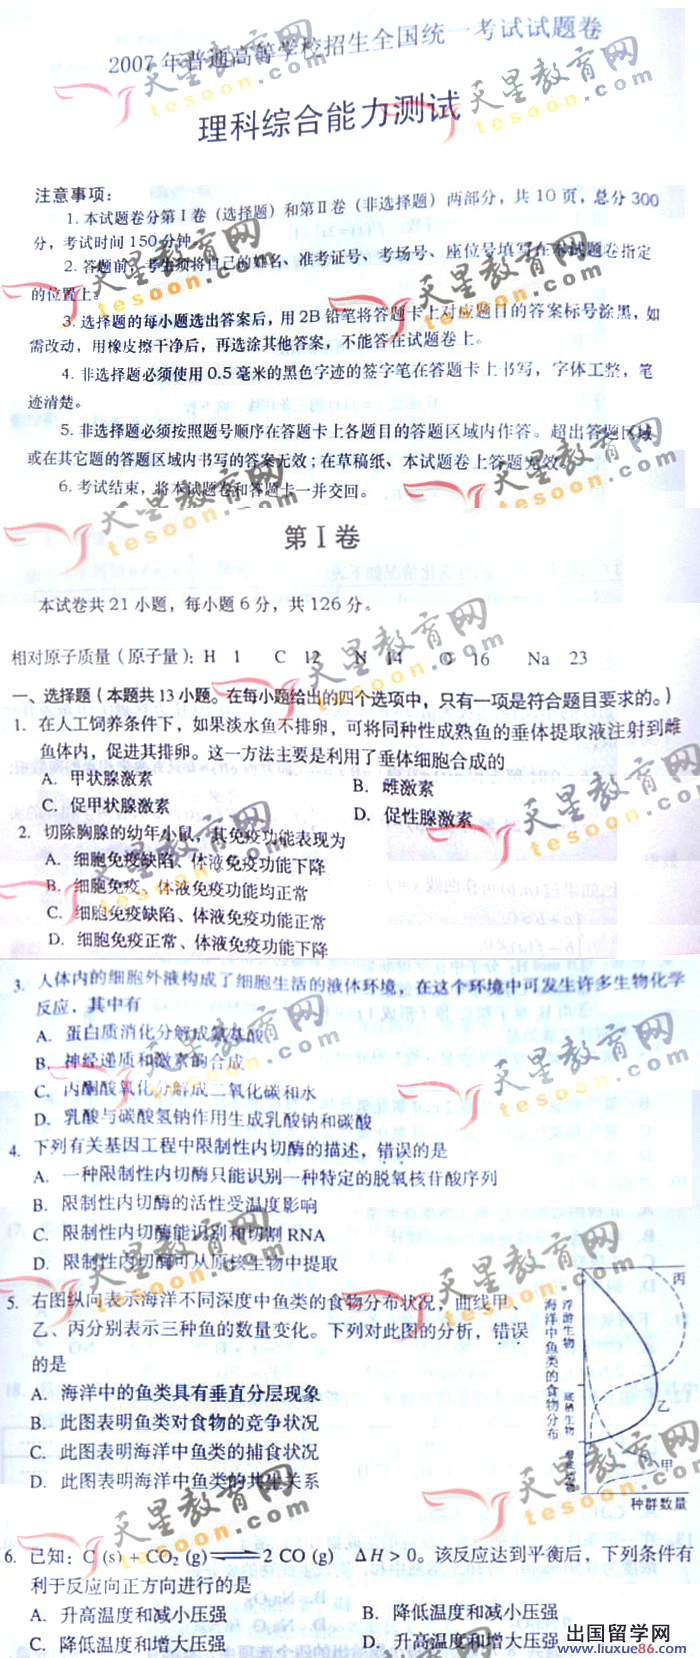 2007年普通高等学校招生全国统一考试试题卷
理科综合能力测试
注意事项：
1.本试题卷分第Ⅰ卷（选择题）和第Ⅱ卷（非选择题）两部分，共10页，总分300
分，考试时间150分钟。
2.答题前，考生须将自己的姓名、准考证号、考场号、座位号填写在本试题卷指定
的位置上。
3.选择题的每小题选出答案后，用2B铅笔将答题卡上对应题目的答案标号涂黑，如
需改动，用橡皮擦干净后，再选涂其他答案，不能答在试题卷上。
4.非选择题必须使用0.5毫米的黑色字迹的签字笔在答题卡上书写，字体工整，笔
迹清楚。
5.非选择题必须按照题号顺序在答题卡上各题目的答题区域内作答。超出答题区域
或在其它题的答题区域内书写的答案无效；在草稿纸、本试题卷上答题无效。
6.考试结束，将本试题卷和答题卡一并交回。
第Ⅰ卷
本试卷共21小题，每小题6分，共126分。
相对原子质量（原子量）：H 1 C 12 N 14 O 16 Na 23
一、选择题（本题共13小题。在每小题给出的四个选项中，只有一项是符合题目要求的。）
1. 在人工饲养条件下，如果淡水鱼不排卵，可将同种性成熟鱼的垂体提取液注射到雌
鱼体内，促进其排卵。这一方法主要是利用了垂体细胞合成的
A. 甲状腺激素
B. 雌激素
C. 促甲状腺激素
D. 促性腺激素
2. 切除胸腺的幼年小鼠，其免疫功能表现为
A. 细胞免疫缺陷、体液免疫功能下降
B. 细胞免疫、体液免疫功能均正常
C. 细胞免疫缺陷、体液免疫功能正常
D. 细胞免疫正常、体液免疫功能下降
3. 人体内的细胞外液构成了细胞生活的液体环境，在这个环境中可发生许多生物化学
反应，其中有
A. 蛋白质消化分解成氨基酸
B. 神经递质和激素的合成
C. 丙酮酸氧化分解成二氧化碳和水
D. 乳酸与碳酸氢钠作用生成乳酸钠和碳酸
4. 下列有关基因工程中限制性内切酶的描述，错误的是
A. 一种限制性内切酶只能识别一种特定的脱氧核苷酸序列
B. 限制性内切酶的活性受温度影响
C. 限制性内切酶能识别和切割RNA
D. 限制性内切酶可从原核生物中提取
5. 右图纵向表示海洋不同深度中鱼类的食物分布状况，曲线甲、
乙、丙分别表示三种鱼的数量变化。下列对此图的分析，错误
的是
A. 海洋中的鱼类具有垂直分层现象
B. 此图表明鱼类对食物的竞争状况
C. 此图表明海洋中鱼类的捕食状况
D. 此图表明海洋中鱼类的共生关系
海洋中鱼类的食物分布
浮游生物
底栖生物
丙
乙
甲
种群数量
6. 已知：C (s) + CO₂ (g) ⇌ 2 CO (g) ΔH > 0。该反应达到平衡后，下列条件有
利于反应向正方向进行的是
A. 升高温度和减小压强
B. 降低温度和减小压强
C. 降低温度和增大压强
D. 升高温度和增大压强
天星教育网
tesoon.com
出国留学网
www.liuxue86.com